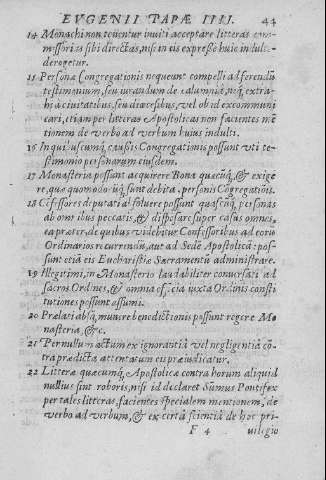 EVGENII PAPÆ IIII. 44
14 Monachi non tenentur inuiti acceptare litteras com-
missorias sibi directas, nisi in eis expresse huic indulto
derogetur.
15 Personæ Congregationis nequeunt compelli ad ferendũ
testimonium, seu iurandum de calumnia, neq; extra-
hi a ciuitatibus, seu diœcesibus, vel ob id excommuni
cari, etiam per litteras Apostolicas non facientes mẽ
tionem de verbo ad verbum huius indulti.
16 In quibuscunq; causis Congregationis possunt vti te-
stimonio personarum eiusdem.
17 Monasteria possunt acquirere Bona quæcũq;, & exige
re, quæ quomodolibet sunt debita personis Cõgregatiõis.
18 Cõfessores deputati absoluere possunt quascũq; personas
ab omnibus peccatis, & dispensare super casus omnes,
ea præter, de quibus videbitur Confessoribus ad eorũ
Ordinarios recurrendũ, aut ad Sedẽ Apostolicã: pos-
sunt etiã eis Eucharistiæ Sacramentũ administrare.
19 Illegitimi, in Monasterio laudabiliter conuersati ad
sacros Ordines, & omnia officia iuxta Ordinis consti
tutiones possunt assumi.
20 Prælati absq; munere benedictionis possunt regere Mo
nasteria, &c.
21 Per nullum actum ex ignorantia vel negligentia cõ-
tra prædicta attentatum eis præiudicatur.
22 Litteræ quæcumq; Apostolicæ contra horum aliquid
nullius sint roboris, nisi id declaret Sũmus Pontifex
per tales litteras, facientes specialem mentionem, de
verbo ad verbum, & ex certa scientia de hoc pri-
F 4 uilegio